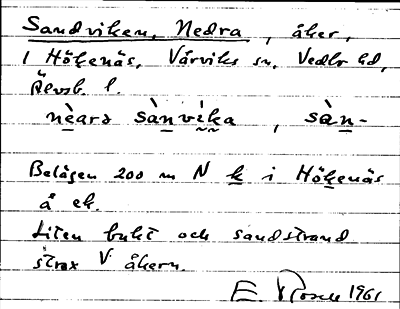 Sandviken, Nedra, åker,
i Hökenäs, Vårviks sn, Vedbo hd,
Älvsb. l.
nèarə sànvìka, sàn-
Belägen 200 m N k i Hökenäs
å ek.
Liten bukt och sandstrand
strax V åkern.
E. 1961